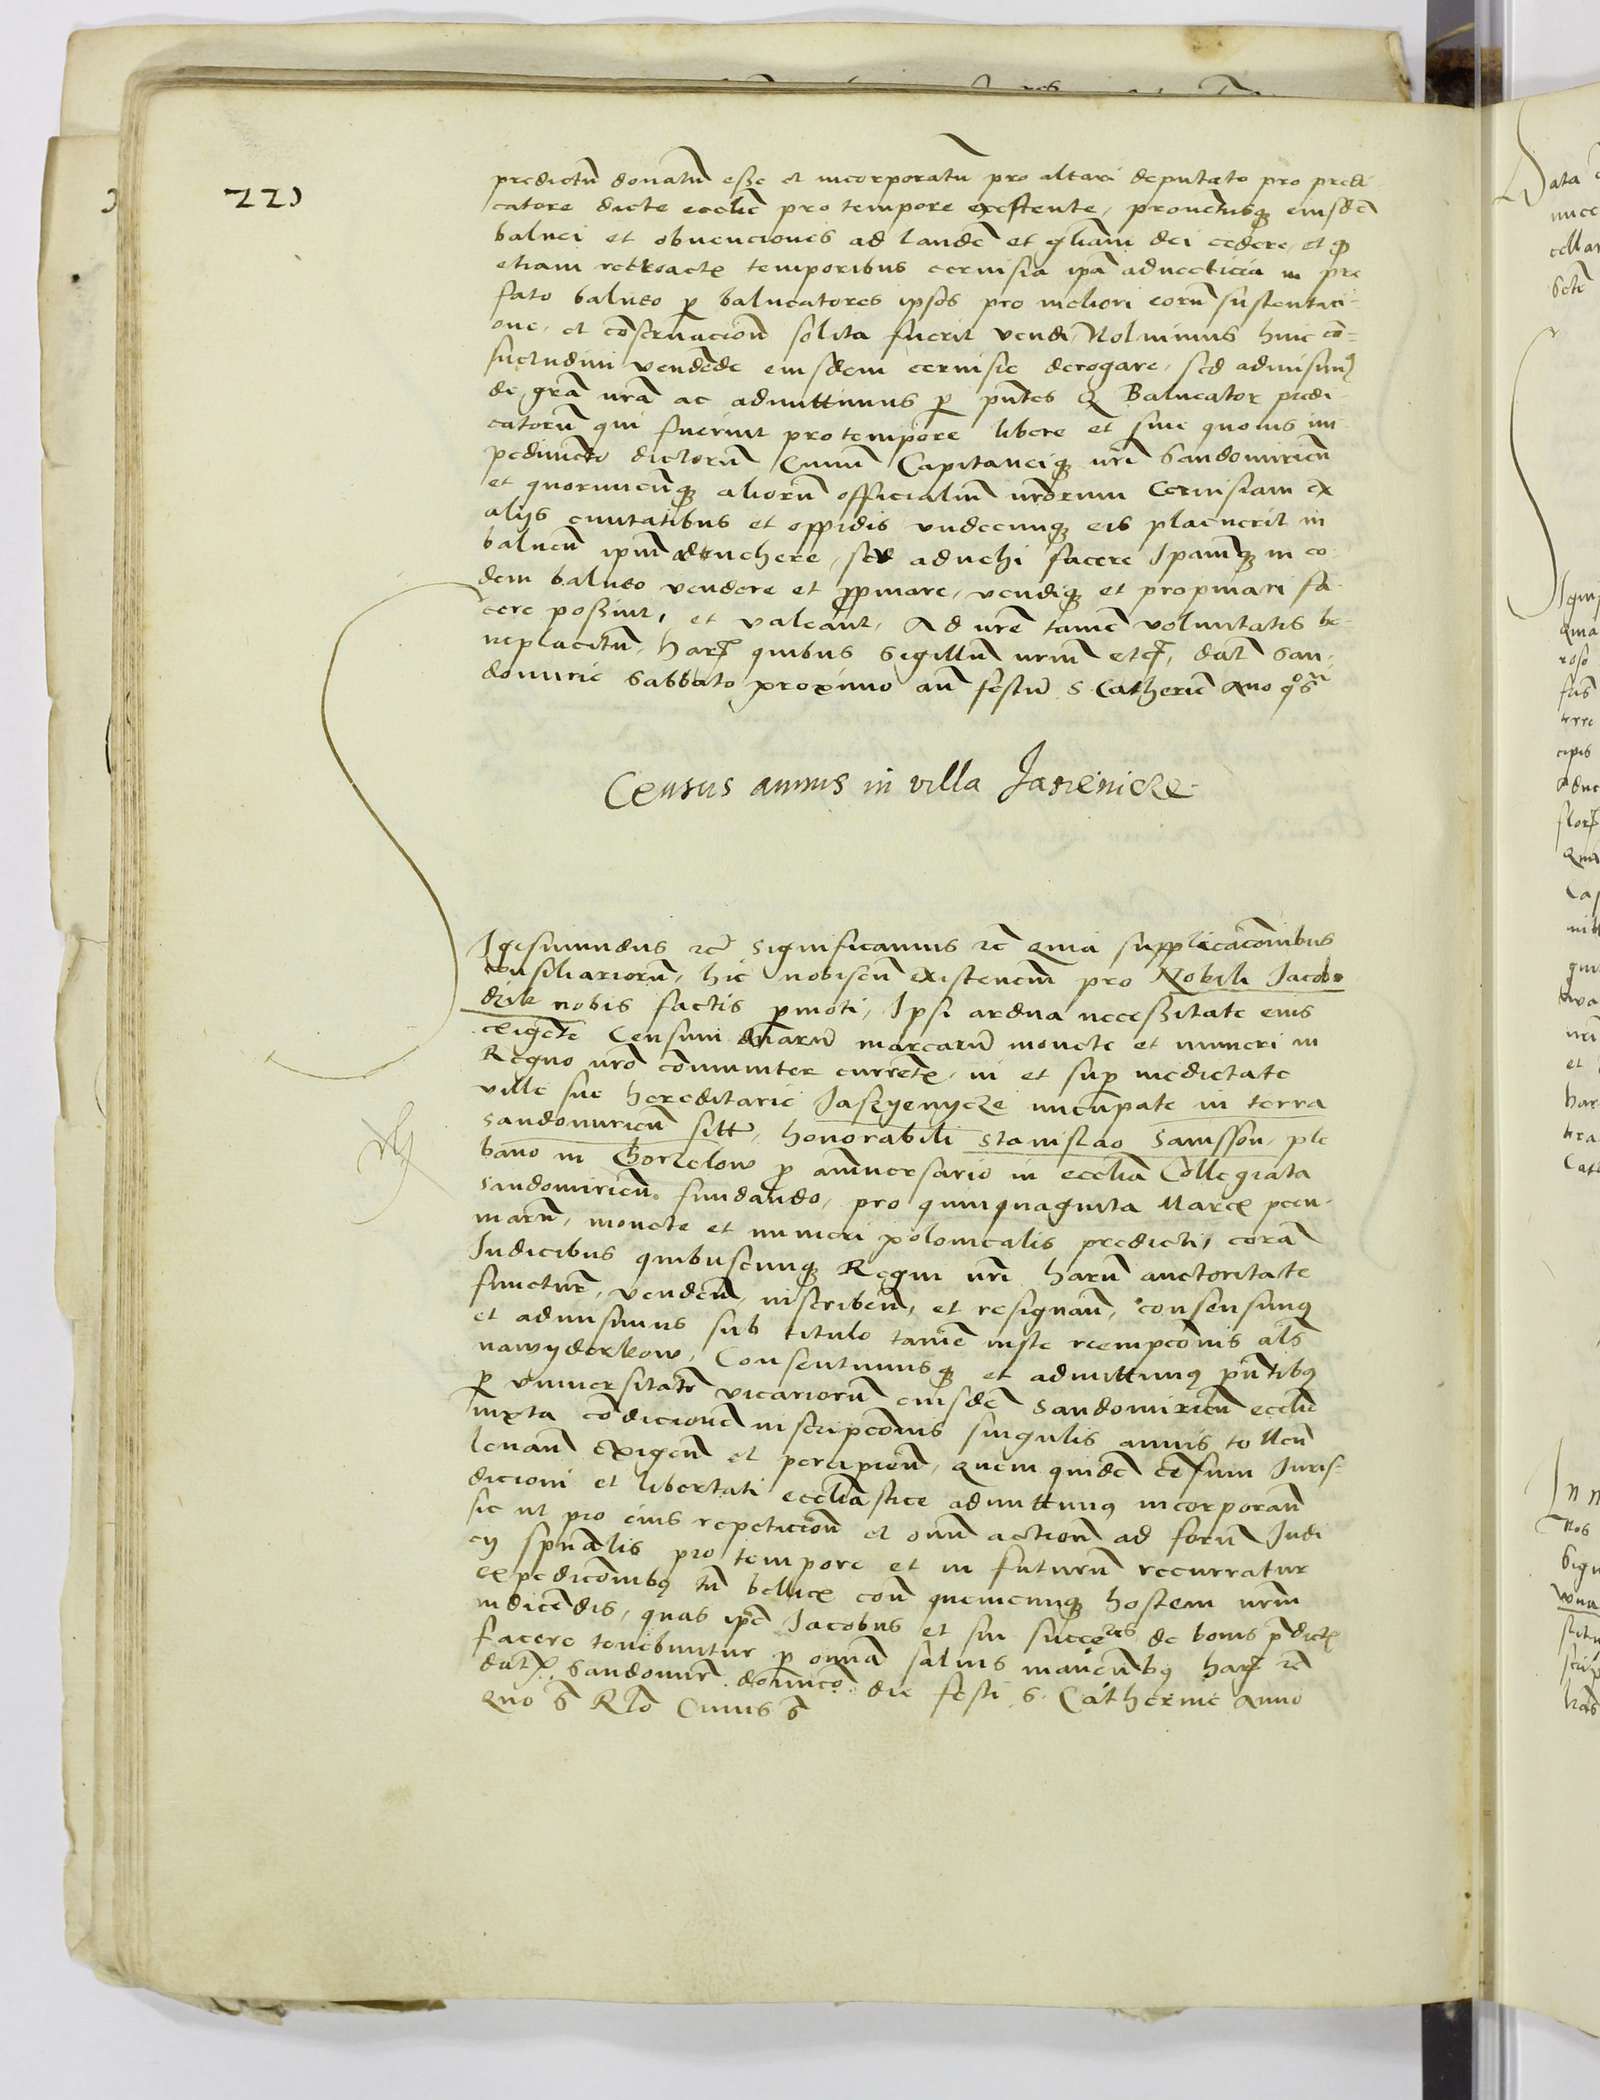 221
predictũ donatũ esse et incorporatũ pro altari deputato pro predi-
catore dicte ecclie pro tempore existente, prouentusq eiusdẽ
balnei et obuenciones ad laudẽ et gliam dei cedere, et q
etiam retroactis temporibus ceruisia ipa aduecticia in pre
fato balneo p balneatores ipsos pro meliori eorũ sustentaci-
one, et cõseruacioñ solita fuerit vendi Noluimus huic cõ-
suetudini vendẽde eiusdem ceruisie derogare, sed admisimꝰ
de grã nrã ac admittimus p pñtes Q Balneator predi-
catorũ qui fuerint pro tempore libere et sine quouis im
pedimẽto dictorũ Ciuiũ Capitaneiq nri Sandomirieñ
et quorumcũq aliorũ officialiũ nrorum Ceruisiam ex
alijs ciuitatibus et oppidis vndecunq eis placuerit in
balneũ ipm aduehere, seu aduehi facere Ipamq in eo
dem balneo vendere et ppinare, vendiq et propinari fa
cere possint, et valeant, Ad nre tamẽ voluntatis be-
neplacitũ, harꝫ quibus Sigillũ nrm etcꝫ, dat San-
domirie Sabbato proximo añ festũ S Catherie Ano qᵒ sᵘ
Census annus in villa Jasienicze
Igismundus rc̃ Significamus rc̃ Quia supplicacõnibus
consiliariorũ, hic nobiscũ existenciũ pro Nobili Jacobo
dzik nobis factis pmoti, Ipsi ardua necessitate eius
exigẽte Censum duarũ marcarũ monete et numeri in
Regno nro cõmuniter currẽtꝫ, in et sup medietate
ville sue hereditarie Jaszyenycze nũcupate in terra
Sandomirieñ sitt, honorabili Stanislao Samsson, ple
bano in Gorzelow p anniuersario in ecclia Collegiata
Sandomirieñ fundando, pro quinquaginta Marcꝫ pecu-
niarũ, monete et numeri polonicalis predicti, corã
Iudicibus quibuscunq Regni nri harũ auctoritate
functurꝫ, vendeñ, inscribeñ, et resignañ, consensimꝰ
et admisimus sub titulo tamẽ iuste reempcõnis als
nawyderkow, Consentimusq et admittimꝰ pñtibꝰ
p vniuersitatẽ vicariorũ eiusdẽ Sandomirieñ ecclie
iuxta cõdicionẽ inscripcõnis singulis annis tolleñ
leuañ exigeñ et percipieñ, Quem quidẽ cẽsum Iuris-
dicioni et libertati ecclesiastice admittimꝰ incorporañ
sic ut pro eius repeticioñ et omñ actioñ ad forũ Iudi
cij spũalis pro tempore et in futurũ recurratur
expedicõnibꝰ tñ bellicꝫ coñ quemcunq hostem nrm
indicẽdis, quas ipe Jacobus et sui succeres de bonis pdictꝫ
facere tenebuntur p omia saluis manẽtibꝰ harꝫ rc̃
datꝫ Sandomirꝫ dominico die festi S. Catherine Anno
Quo s̃ Rlõ Cuius s̃